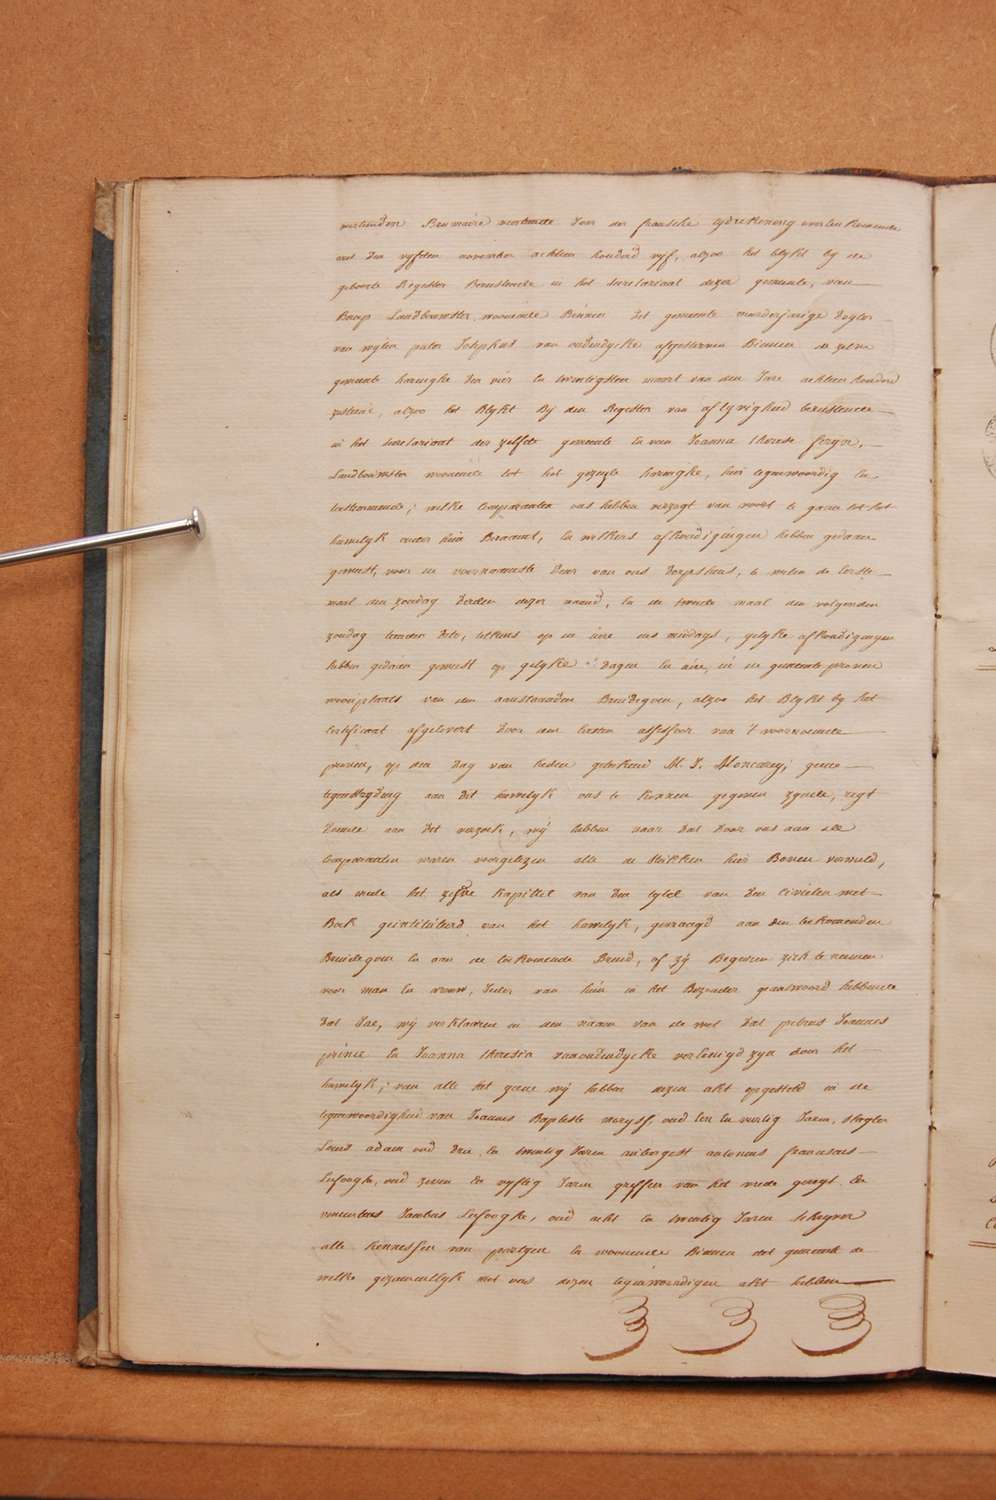 veertienden Brumaire veerthiende Jaer der fransche tydrekening overeenkomende
met den vyfden november achtien honderd vyf, alzoo het blykt by de
geboorte Register Berustende in het secretariaat dezer gemeente, van
Beroep Landbouwster woonende Binnen dit gemeente meerderjarige dogter
van wylen pieter Josephus van oudendycke afgestorven Binnen de zelve
gemeente haringhe den vier en twentigsten maart van den Jare achtien honderd
zesthiene, alzoo het Blykt By den Register van aflyvigheid berustende
in het secretariaat der zelfde gemeente en van Joanna therese
Landbouwster woonende tot het gezeyde haringhe, hier tegenwoordig en
toestemmende; welke comparanten ons hebben verzogt van voort te gaen tot het
huwelyk onder hun Beraamt, en welkers afkondigingen hebben gedaan
geweest, voor de voornaemste deur van ons dorpshuis, te weten de eerste
maal den zondag derden dezer maand, en de tweede maal den volgenden
zondag thienden dito, telkens op de ure des middags, gelyke afkondigingen
hebben gedaan geweest op gelyke dagen en ure, in de gemeente proven
woonplaats van den aanstaanden Bruidegom, alzoo het Blykt by het
certificaat afgelevert door den eersten assessor van 't voornoemde
proven, op den dag van heden getekend M. J. Moncarey; geene
tegenstryding aan dit huwelyk ons te kennen gegeven zynde, regt
doende aan dit verzoek, wy hebben naar dat door ons aan de
comparanten waren voorgelezen alle de stukken hier Boven vermeld,
als mede het zesde kapittel van den tytel van den civielen wet
Boek geintituleerd van het huwelyk, gevraagd aan den toekomenden
Bruidegom en aan de toekomende Bruid, of zy Begeeren zich te nemen
voor man en vrouw, Jeder van hun in het Bezonder geantwoord hebbende
dat Jae, wy verklaaren in den naam van de wet dat petrus Joannes
prince en Joanna theresia vanoudendycke vereenigd zyn door het
huwelyk; van alle het geene wy hebben dezen akt opgesteld in de
tegenwoordigheid van Joannes Baptiste oud een en veertig Jaren,
Louis adam oud drie en twentig Jaren antonius franciscus
oud zeven en vyftig Jaren greffier van het vrede geregt en
Jacobus oud acht en twentig Jaren schryver
alle kennissen van partyen en woonende Binnen dit gemeente de
welke gezamentlyk met ons dezen tegenwoordigen akt hebben